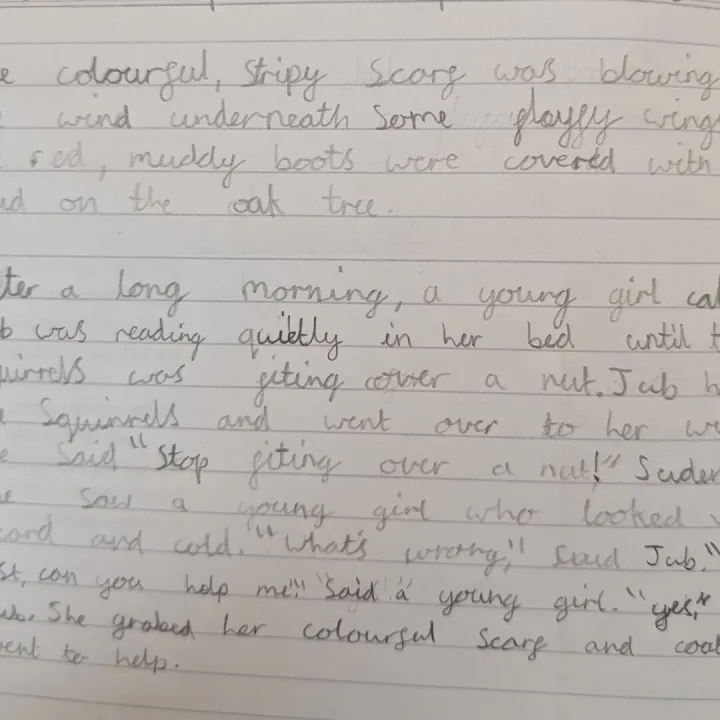 e colourful, stripy scarf was blowing
wind underneath some glayfy wing
red, muddy boots were covered with
ud on the oak tree.
ter a long morning, a young girl cal
b was reading quietly in her bed until t
quirrels was fiting over a nut. Jub h
e Squinrels and went over to her w
e said "Stop fiting over a nut!" Suden
e saw a young girl who looked
cord and cold. "What's wrong," said Jub. "
st, can you help me" said a young girl. "yes,"
ub. She grabed her colourful scarf and coat
ent to help.